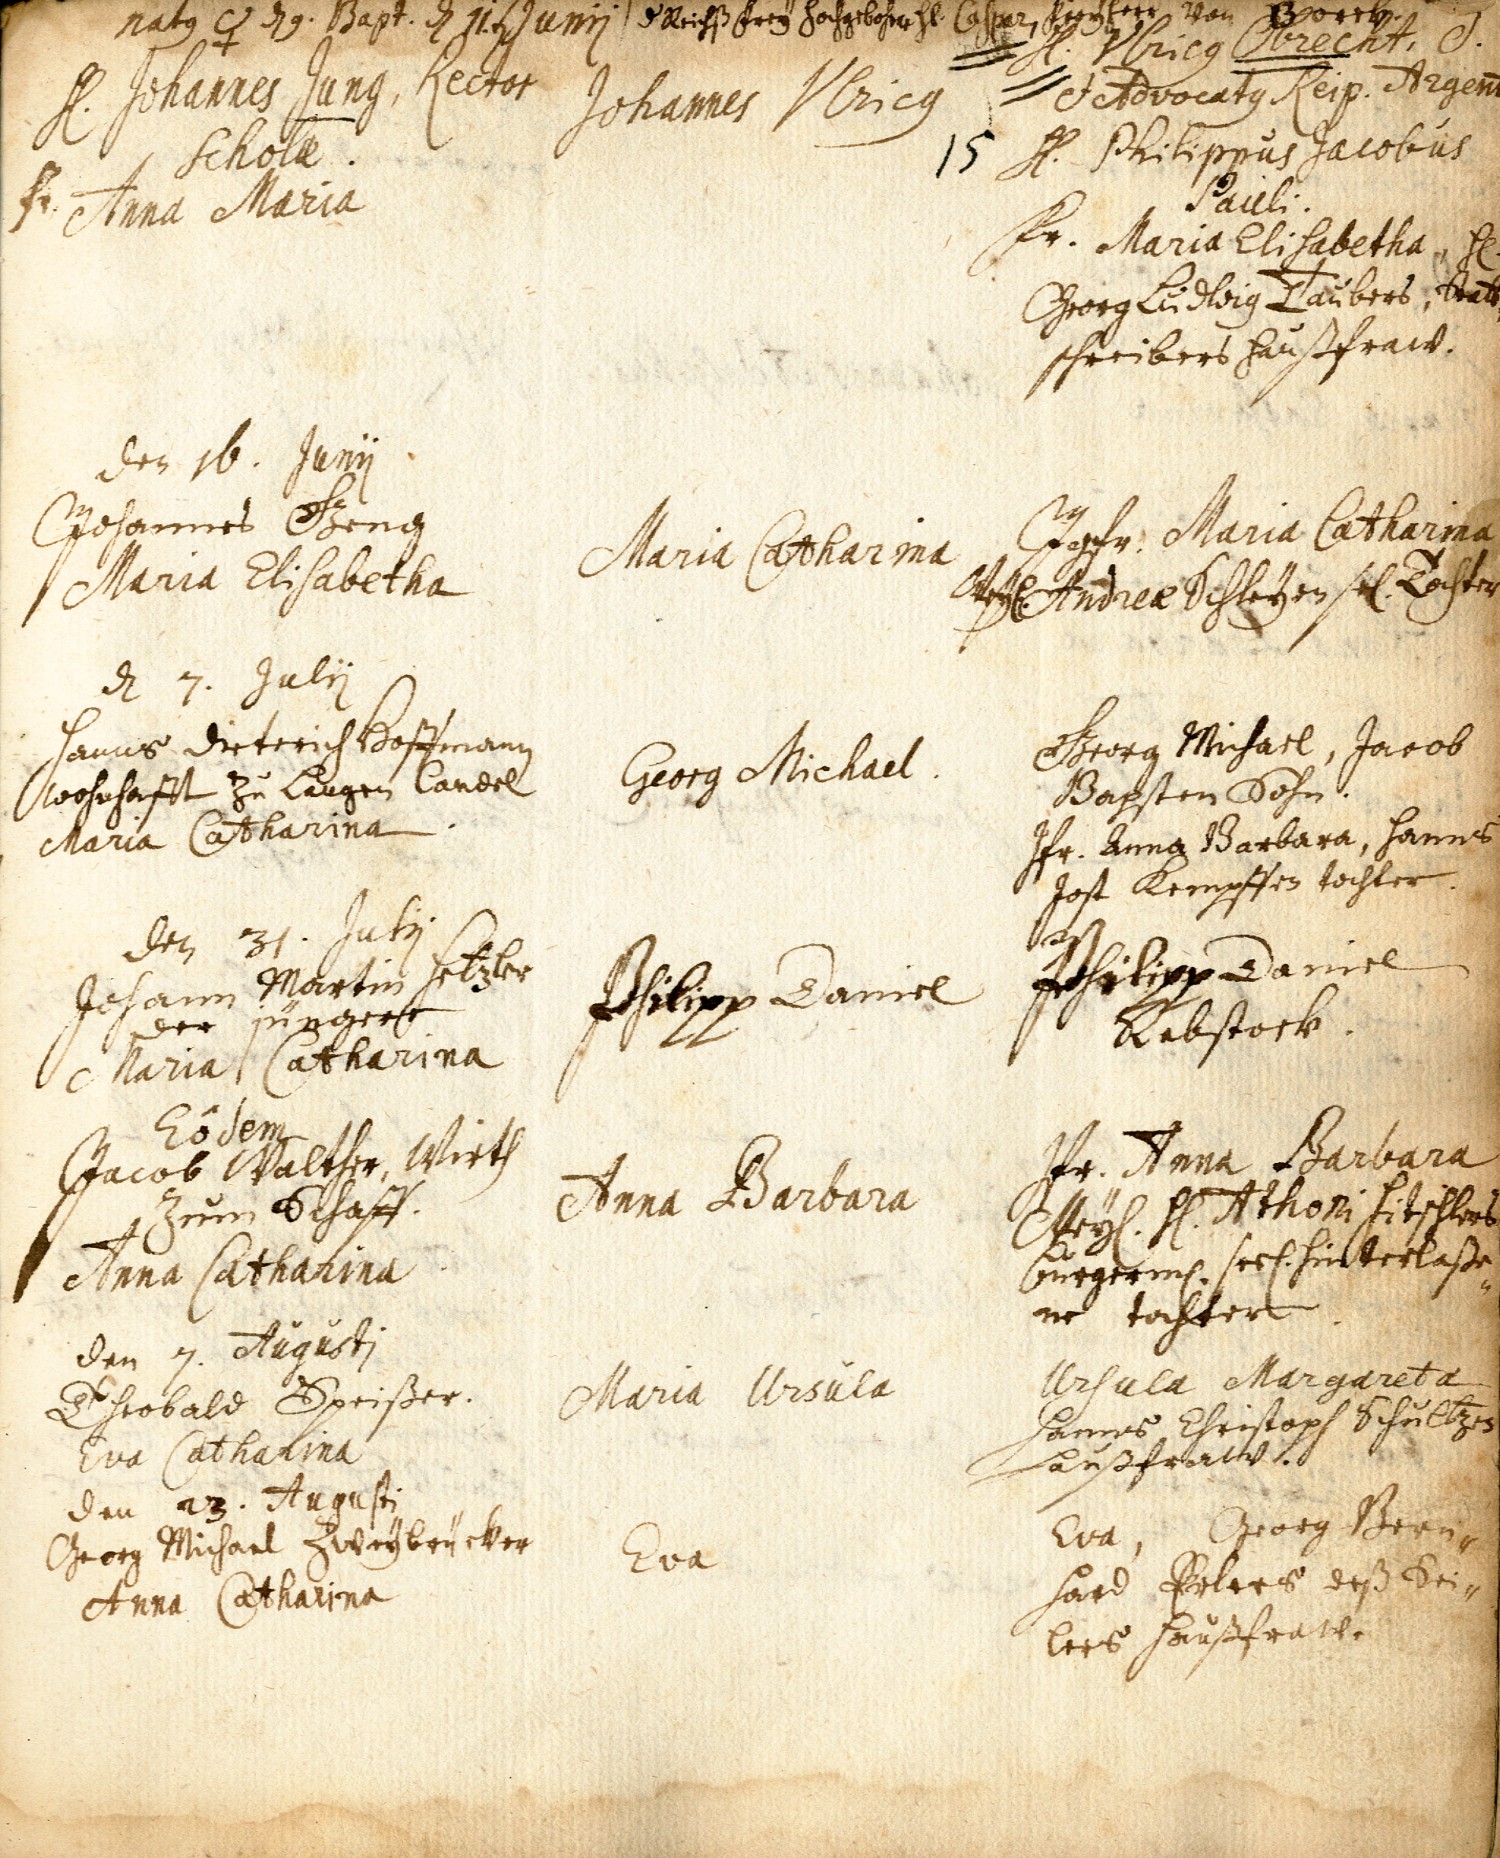 natus ☿ d. 9. Bapt. d. 11. Junij / d Reichß frey hochgebohrne hl. Caspar, freyherr von
H. Johannes Jung, Rector
Scholæ.
Fr. Anna Maria
Johannes Ulricus
H. Ulricus Obrecht, J.
Advocatus Reip. Argent
15
H. Philippus Jacobus
Pauli.
Fr. Maria Elisabetha, H.
Georg Ludwig Taubers, Statt
schreibers haußfraw.
den 16. Junij
Johannes
Maria Elisabetha
Maria Catharina
Jgfr. Maria Catharina
Weyl. Andreæ Schleyen sel. Tochter
d 7. Julij
Hanns Dieterich Hoffmann
wohnhafft zu Langen Candel
Maria Catharina
Georg Michael.
Georg Michael, Jacob
Bapsten Sohn.
Jfr. Anna Barbara, Hanns
Jost Kempffen tochter.
den 31. Julij
Johann Martin Hetzler
der jüngere
Maria Catharina
Philipp Daniel
Philipp Daniel
Rebstock.
Eôdem
Jacob Walther, Wirth
zum Schaff.
Anna Catharina
Anna Barbara
Jfr. Anna Barbara
Weyl. H. Athoni Hitschlers
burgerm. seel. hinterlaße„
ne tochter.
den 7. Augusti
Theobald Speißer.
Eva Catharina
Maria Ursula
Ursula Margareta
Hannes Christoph Schultzen
haußfraw.
den 23. Augusti
Georg Michael Zweybrücker
Anna Catharina
Eva
Eva, Georg Bern„
hard deß Sei„
lers haußfraw.